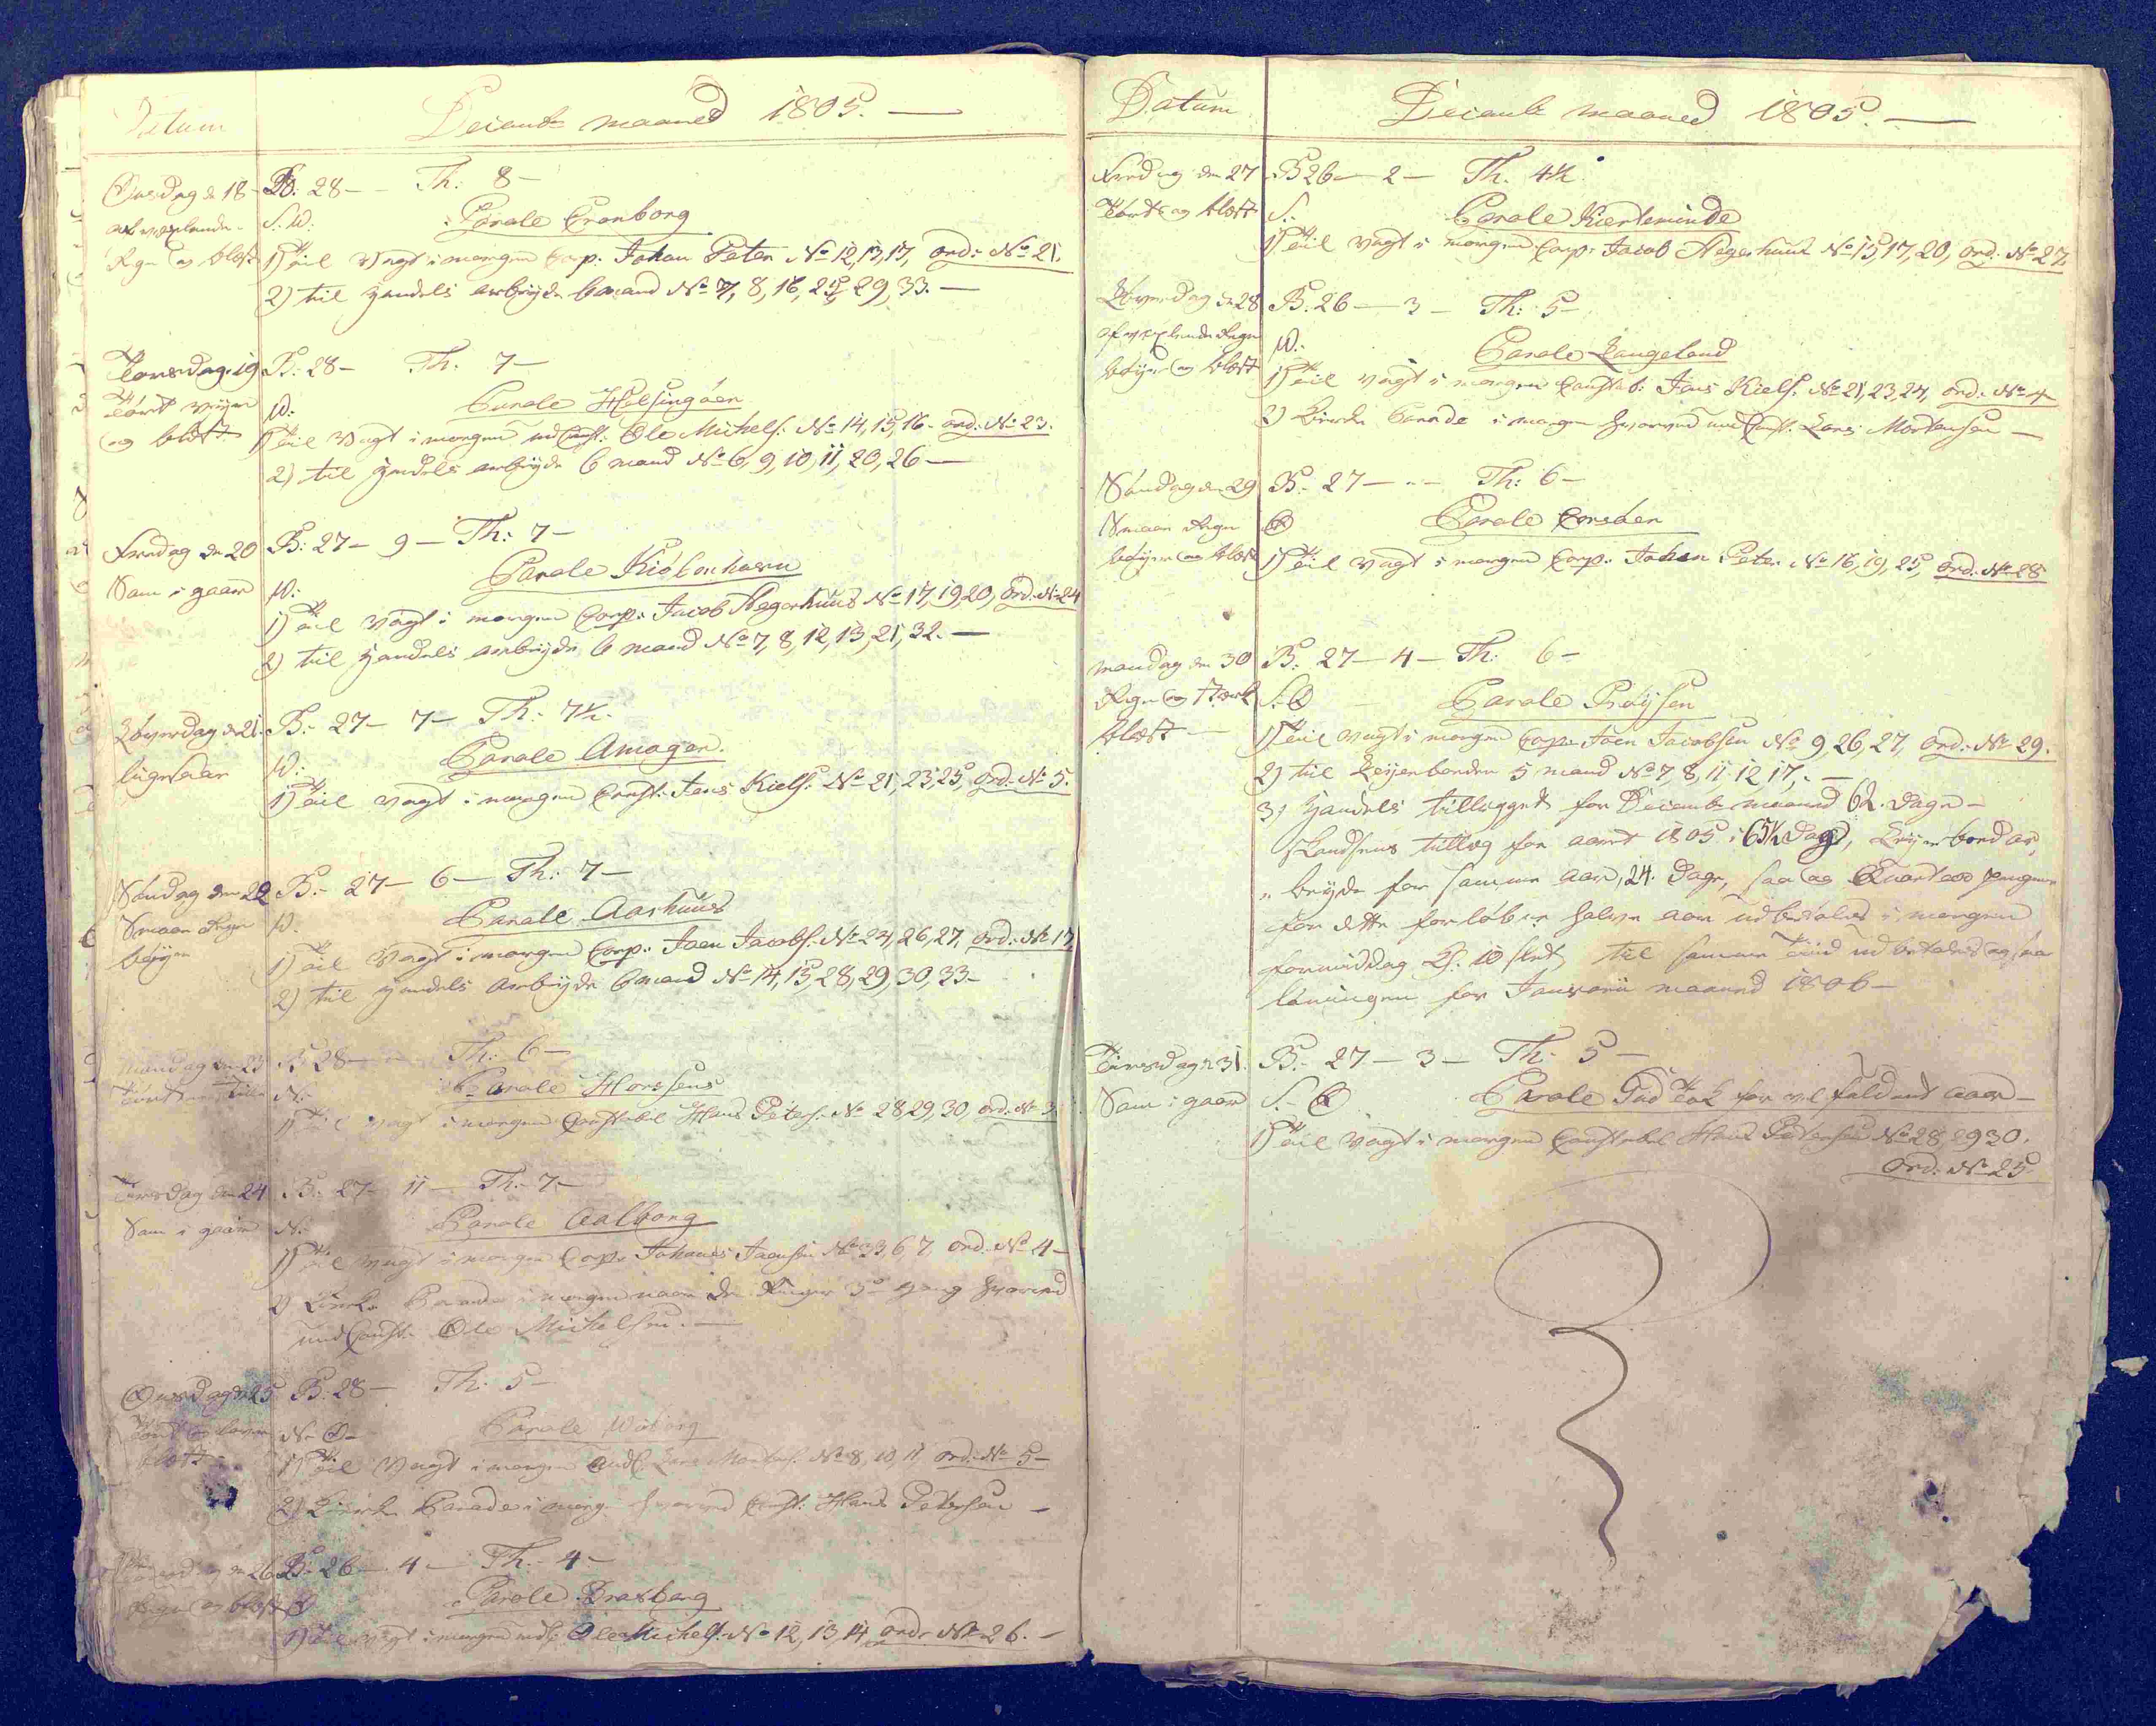 Datum
Decemb. maaned 1805. —
Onsdag d. 18
afvexlende
Regn og blæst
B: 28 — Th: 8 —
S.W.
Parole Cronborg
1) Til Vagt i morgen Corp: Johan Peter No 12, 13, 17, ord: No 21.
2) til Handels arbeyde 6 mand No 7, 8, 16, 25, 29, 33. —
Torsdag 19
Tört veyr
og blæst
B: 28 — Th: 7 —
W:
Parole Helsingöer
1) Til Vagt i morgen Const: Ole Michels: No 14, 15, 16 - ord: No 23.
2) til Handels arbeyde 6 mand No 6, 9, 10, 11, 20, 26 —
Fredag den 20
Som i gaar
B: 27 — 9 — Th: 7 —
W:
Parole Kiöbenhavn
1) Til Vagt i morgen Corp: Jacob Hegerhuus No 17, 19, 20, Ord: No 24
2) til Handels arbeyde 6 mand No 7, 8, 12, 13, 21, 32. —
Löverdag d. 21.
ligesaa
B: 27 — 7 — Th: 7½.
W:
Parole Amager.
1) Til Vagt i morgen Const: Jens Niels: No 21, 23, 25, Ord: No 5.
Söndag den 22
Smaae Regn
böyer
B: 27 — 6 — Th: 7 —
W.
Parole Aarhuus
1) Til Vagt i morgen Corp: Joen Jacobs: No 24, 26, 27, ord: No 17
2) til Handels arbeyde 6 mand No 14, 15, 28, 29, 30, 33 —
Mandag den 23
B: 28 — Th: 6 —
N:
Parole Horssens
1) Til Vagt i morgen Constabel Hans Peters: No 28, 29, 30, ord: No 3
Tirsdag den 24
Som i gaar
B: 27 — 11 — Th: 7 —
N:
Parole Aalborg
1) Til Vagt i morgen Corp: Johanes Joensen No 33, 6, 7, ord: No 4 —
2) Kirke Parade i morgen naar der Ringes 3de gang
Const: Ole Michelsen. —
Onsdag d. 25
blæst
B: 28 — Th: 5 —
N. O —
Parole Wiborg
1) Til Vagt i morgen No 8, 10, 11 ord: No 5 —
2) Kirke Parade i morgen Const: Hans Petersen —
den 26
Regn og blæst
B: 26 — 4 — Th: 4 —
O
Parole
1) Til Vagt i morgen Ole Michels: No 12, 13, 14, ord: No 26. —
Datum
Decemb. maaned 1805. —
Fredag den 27
Tört og blæst
B 26 — 2 — Th. 4½
S.
Parole Kierteminde
1) Til Vagt i morgen Corp: Jacob Hegerhuus No 15, 17, 20, ord: No 27.
Löverdag d. 28
afvexlende Regn
böyer og blæst
B. 26 — 3 — Th: 5 —
W.
Parole Langeland
1) Til Vagt i morgen Constab: Jens Niels: No 21, 23, 24, ord: No 4
2) Kirke Parade i morgen Const: Lars Mortensen —
Söndag den 29
Smaae Regn
böyer og blæst
B: 27 — Th: 6 —
O
Parole Corsöer
1) Til Vagt i morgen Corp: Johan Peter No 16, 19, 25, ord: No 28
Mandag den 30
Regn og stærk
blæst —
B: 27 — 4 — Th: 6 —
S. O
Parole
1) Til Vagt i morgen Corp: Joen Jacobsen No 9, 26, 27, Ord: No 29.
2) til 5 mand No 7, 8, 11, 12, 17, —
3) Handels tillægget for Decemb. maaned 62. Dage —
tillæg for aaret 1805,
beyde for samme aar, 24. Dage, saa og penge
for dette forløbne halve aar udbetales i morgen
formiddag Kl. 10 slet, til samme Tiid udbetales og saa
löningen for Januarii maaned 1806 —
Tirsdag d. 31.
Som i gaar
B: 27 — 3 — Th: 5 —
S. O
Parole Gud for vel fuldendt aar —
1) Til Vagt i morgen Constabel Hans Petersen No 28, 29, 30.
ord: No 25.